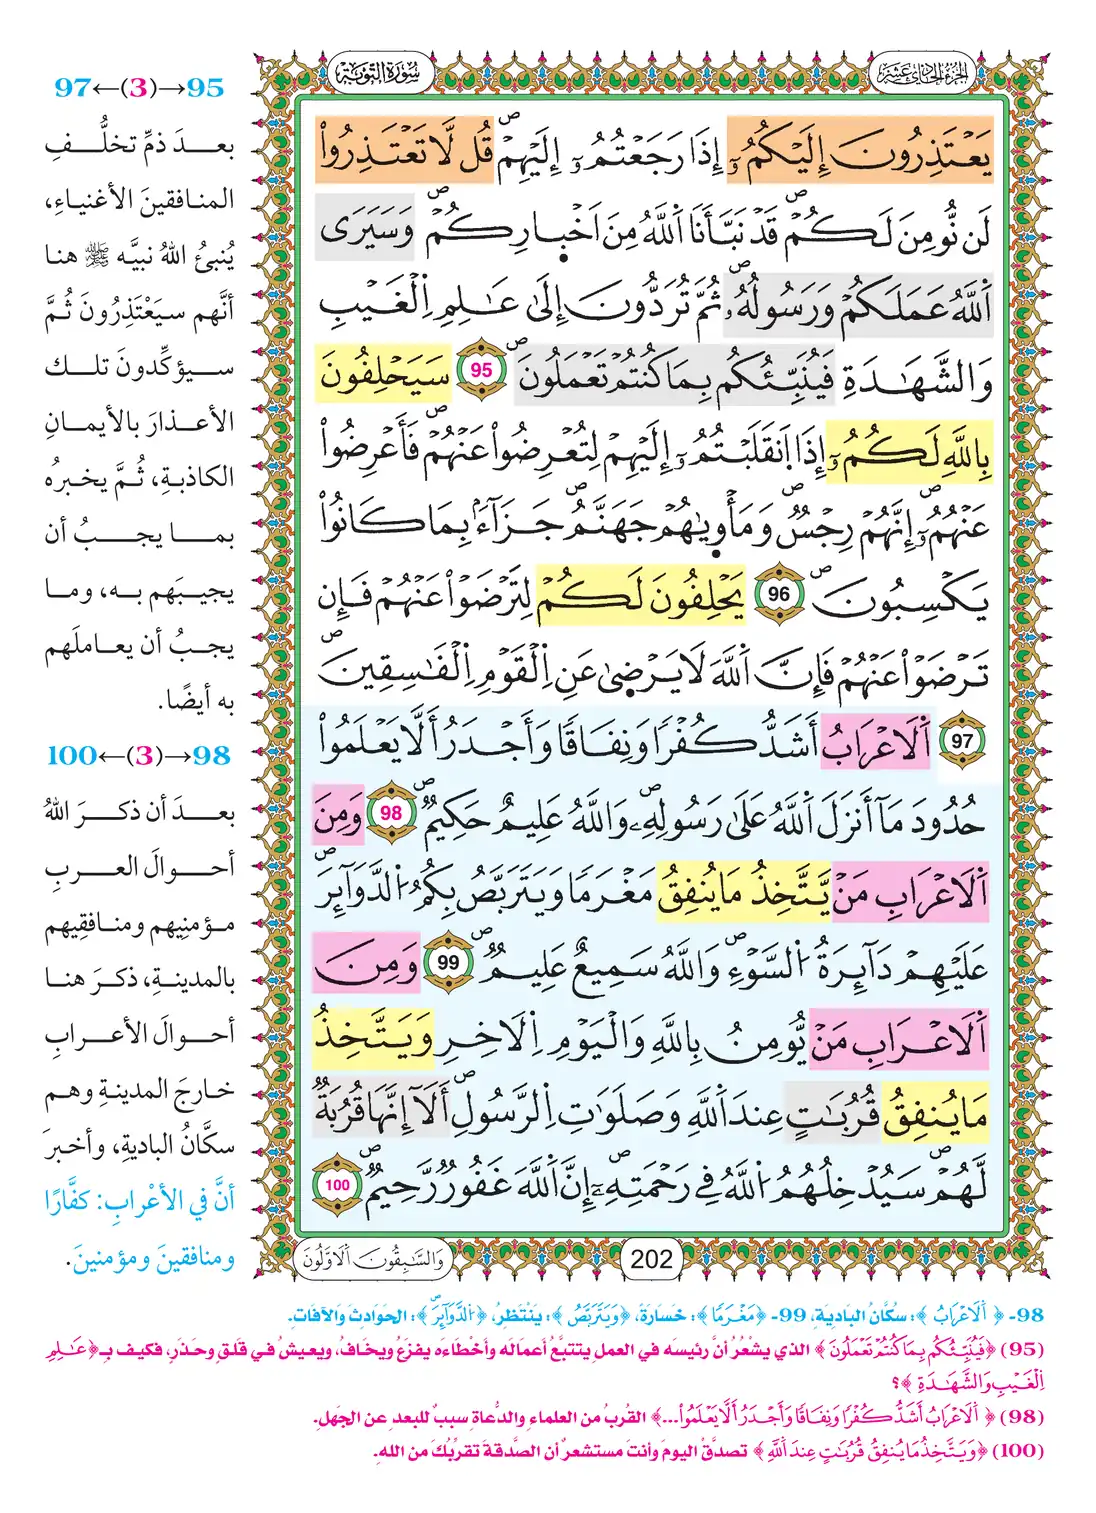 الجزء الحادي عشر
سورة التوبة
يَعْتَذِرُونَ إِلَيْكُمُۥٓ إِذَا رَجَعْتُمُۥٓ إِلَيْهِمْۖ قُل لَّا تَعْتَذِرُواْ
لَن نُّومِنَ لَكُمْۖ قَدْ نَبَّأَنَا اَ۬للَّهُ مِنَ اَخْب۪ارِكُمْۖ وَسَيَرَى
اَ۬للَّهُ عَمَلَكُمْ وَرَسُولُهُۥۖ ثُمَّ تُرَدُّونَ إِلَىٰ عَٰلِمِ اِ۬لْغَيْبِ
وَالشَّهَٰدَةِ فَيُنَبِّئُكُم بِمَا كُنتُمْ تَعْمَلُونَۖ 95 سَيَحْلِفُونَ
بِاللَّهِ لَكُمُۥٓ إِذَا اَ۪نقَلَبْتُمُۥٓ إِلَيْهِمْ لِتُعْرِضُواْ عَنْهُمْۖ فَأَعْرِضُواْ
عَنْهُمُۥٓۖ إِنَّهُمْ رِجْسٞۖ وَمَأْو۪يٰهُمْ جَهَنَّمُۖ جَزَآءَۢ بِمَا كَانُواْ
يَكْسِبُونَۖ 96 يَحْلِفُونَ لَكُمْ لِتَرْضَوْاْ عَنْهُمْ فَإِن
تَرْضَوْاْ عَنْهُمْ فَإِنَّ اَ۬للَّهَ لَا يَرْض۪يٰ عَنِ اِ۬لْقَوْمِ اِ۬لْفَٰسِقِينَۖ
97 اَ۬لَاعْرَابُ أَشَدُّ كُفْرٗا وَنِفَاقٗا وَأَجْدَرُ أَلَّا يَعْلَمُواْ
حُدُودَ مَآ أَنزَلَ اَ۬للَّهُ عَلَىٰ رَسُولِهِۦۖ وَاللَّهُ عَلِيمٌ حَكِيمٞۖ 98 وَمِنَ
اَ۬لَاعْرَابِ مَنْ يَّتَّخِذُ مَا يُنفِقُ مَغْرَمٗا وَيَتَرَبَّصُ بِكُمُ اُ۬لدَّوَآئِرَۖ
عَلَيْهِمْ دَآئِرَةُ اُ۬لسَّوْءِۖ وَاللَّهُ سَمِيعٌ عَلِيمٞۖ 99 وَمِنَ
اَ۬لَاعْرَابِ مَنْ يُّومِنُ بِاللَّهِ وَالْيَوْمِ اِ۬لَاخِرِ وَيَتَّخِذُ
مَا يُنفِقُ قُرُبَٰتٍ عِندَ اَ۬للَّهِ وَصَلَوَٰتِ اِ۬لرَّسُولِۖ أَلَآ إِنَّهَا قُرْبَةٞ
لَّهُمْۖ سَيُدْخِلُهُمُ اُ۬للَّهُ فِي رَحْمَتِهِۦٓۖ إِنَّ اَ۬للَّهَ غَفُورٞ رَّحِيمٞۖ 100
202
وَالسَّٰبِقُونَ اَ۬لَاوَّلُونَ
95→(3)←97
بعدَ ذمِّ تخلُّفِ
المنافقينَ الأغنياءِ،
يُنبئُ اللهُ نبيَّه ﷺ هنا
أنَّهم سيَعْتَذِرُونَ ثُمَّ
سيؤكِّدونَ تلك
الأعذارَ بالأيمانِ
الكاذبةِ، ثُمَّ يخبرُه
بما يجبُ أن
يجيبَهم به، وما
يجبُ أن يعاملَهم
به أيضًا.
98→(3)←100
بعدَ أن ذكرَ اللهُ
أحوالَ العربِ
مؤمنِيهم ومنافقِيهم
بالمدينةِ، ذكرَ هنا
أحوالَ الأعرابِ
خارجَ المدينةِ وهم
سكَّانُ الباديةِ، وأخبرَ
أنَّ في الأعْرابِ: كفَّارًا
ومنافقينَ ومؤمنينَ.
98- ﴿اَ۬لَاعْرَابُ﴾: سكَّانُ الباديةِ، 99- ﴿مَغْرَمٗا﴾: خسارةً، ﴿وَيَتَرَبَّصُ﴾: ينتظرُ، ﴿اُ۬لدَّوَآئِرَۖ﴾: الحوادثَ والآفاتِ.
(95) ﴿فَيُنَبِّئُكُم بِمَا كُنتُمْ تَعْمَلُونَ﴾ الذي يشعُرُ أن رئيسَه في العملِ يتتبَّعُ أعمالَه وأخطاءَه يفزعُ ويخافُ، ويعيش في قلقٍ وحذرٍ، فكيف بـ﴿عَٰلِمِ
اِ۬لْغَيْبِ وَالشَّهَٰدَةِ﴾؟
(98) ﴿اَ۬لَاعْرَابُ أَشَدُّ كُفْرٗا وَنِفَاقٗا وَأَجْدَرُ أَلَّا يَعْلَمُواْ...﴾ القربُ من العلماءِ والدُّعاةِ سببٌ للبعدِ عن الجهلِ.
(100) ﴿وَيَتَّخِذُ مَا يُنفِقُ قُرُبَٰتٍ عِندَ اَ۬للَّهِ﴾ تصدقْ اليومَ وأنتَ مستشعرٌ أن الصَّدقةَ تقربُكَ من اللهِ.